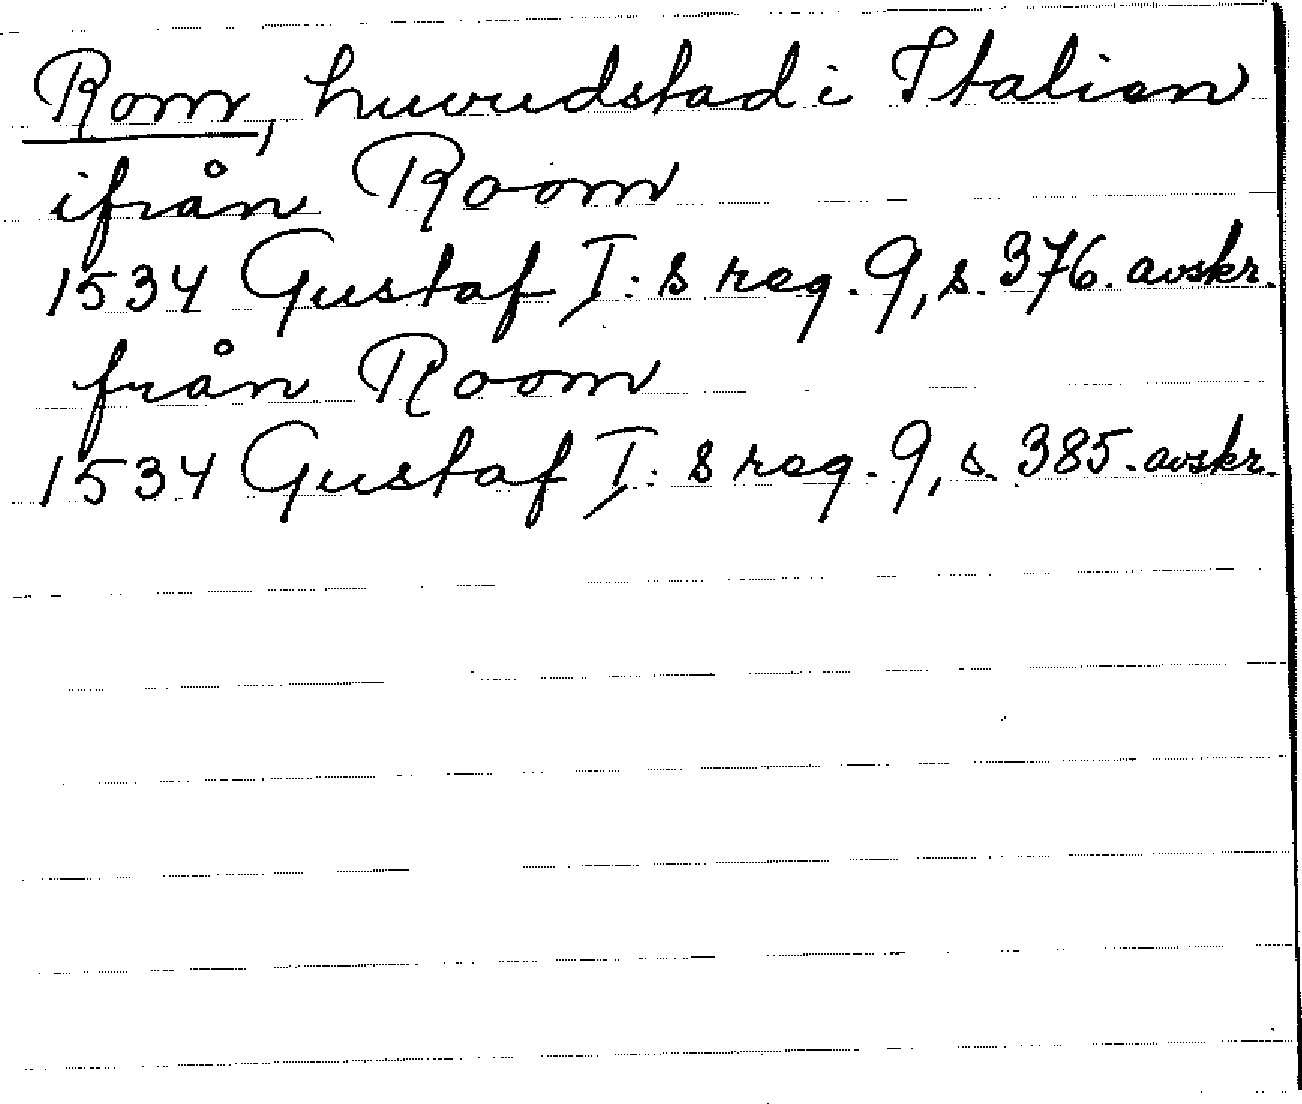 Rom, huvudstad i Italien
ifrån Room
1534 Gustaf I:s reg. 9, s. 376. avskr.
från Room
1534 Gustaf I:s reg. 9, s. 385. avskr.